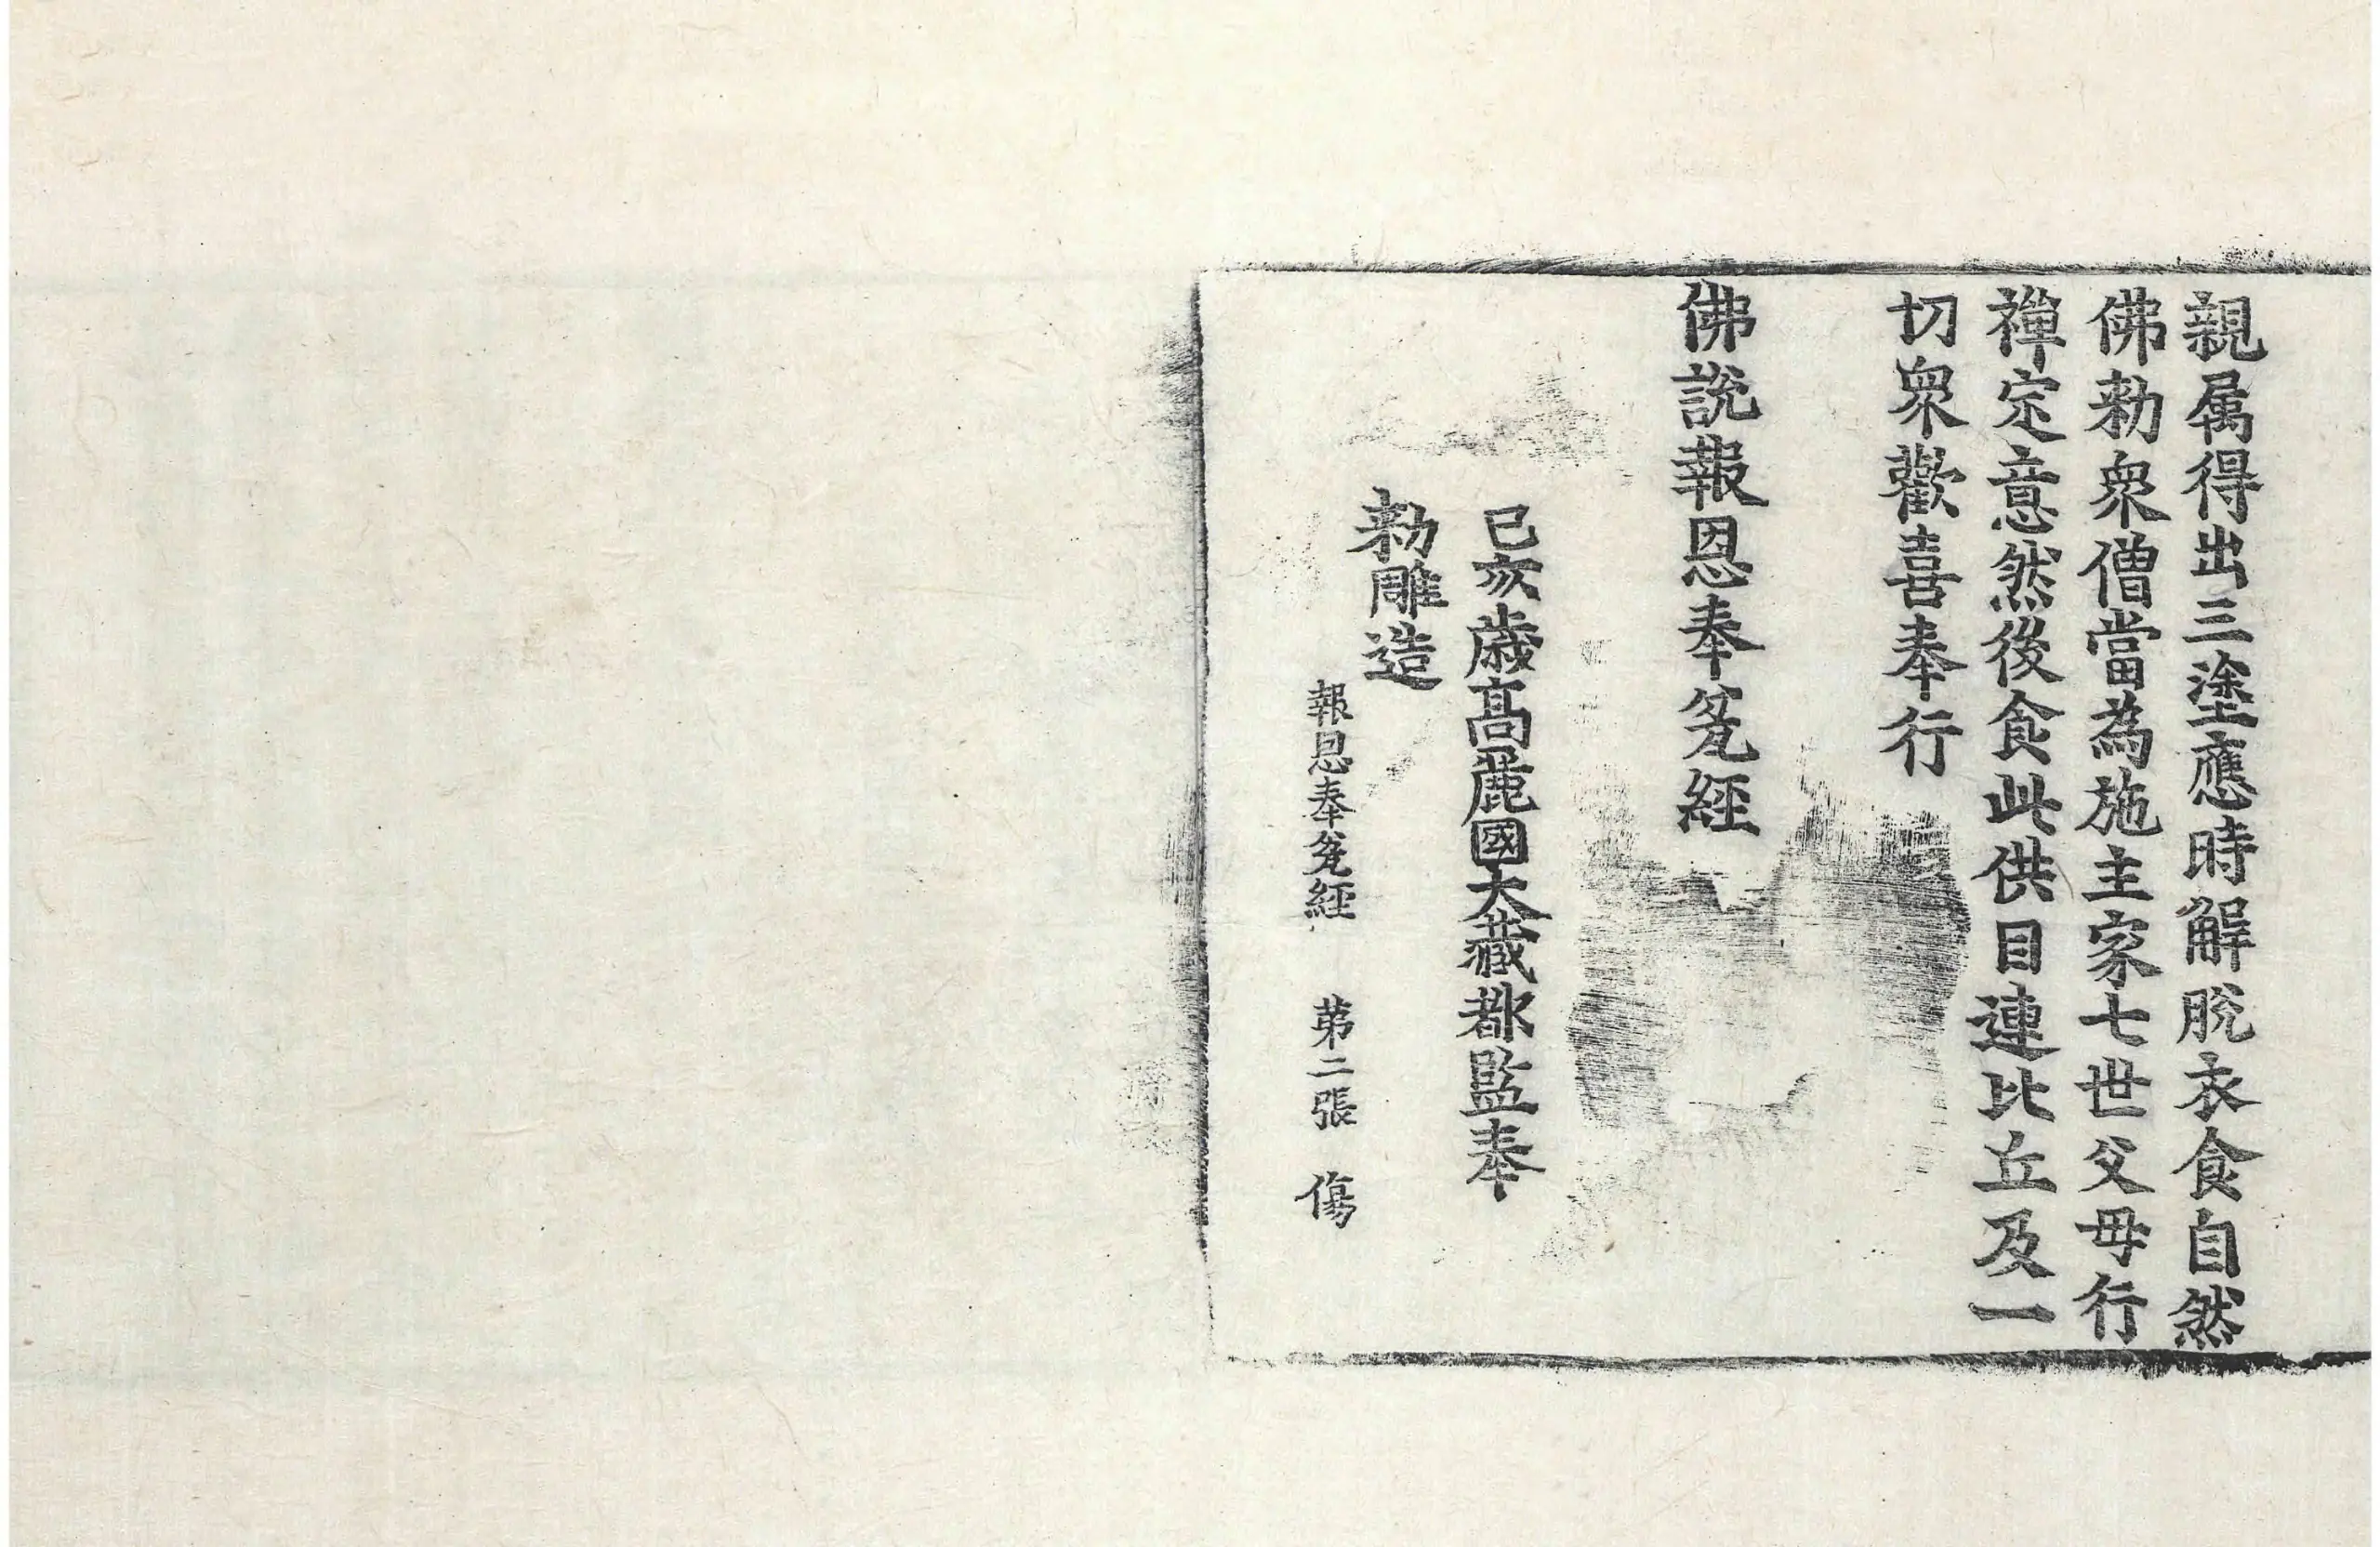 親属得出三塗應時解脫衣食自然
佛勑衆僧當為施主家七世父母行
禪定意然後食此供目連比丘及一
切衆歡喜奉行
佛說報恩奉瓫經
己亥歲高麗國大藏都監奉
勑雕造
報恩奉瓫經 第二張 傷